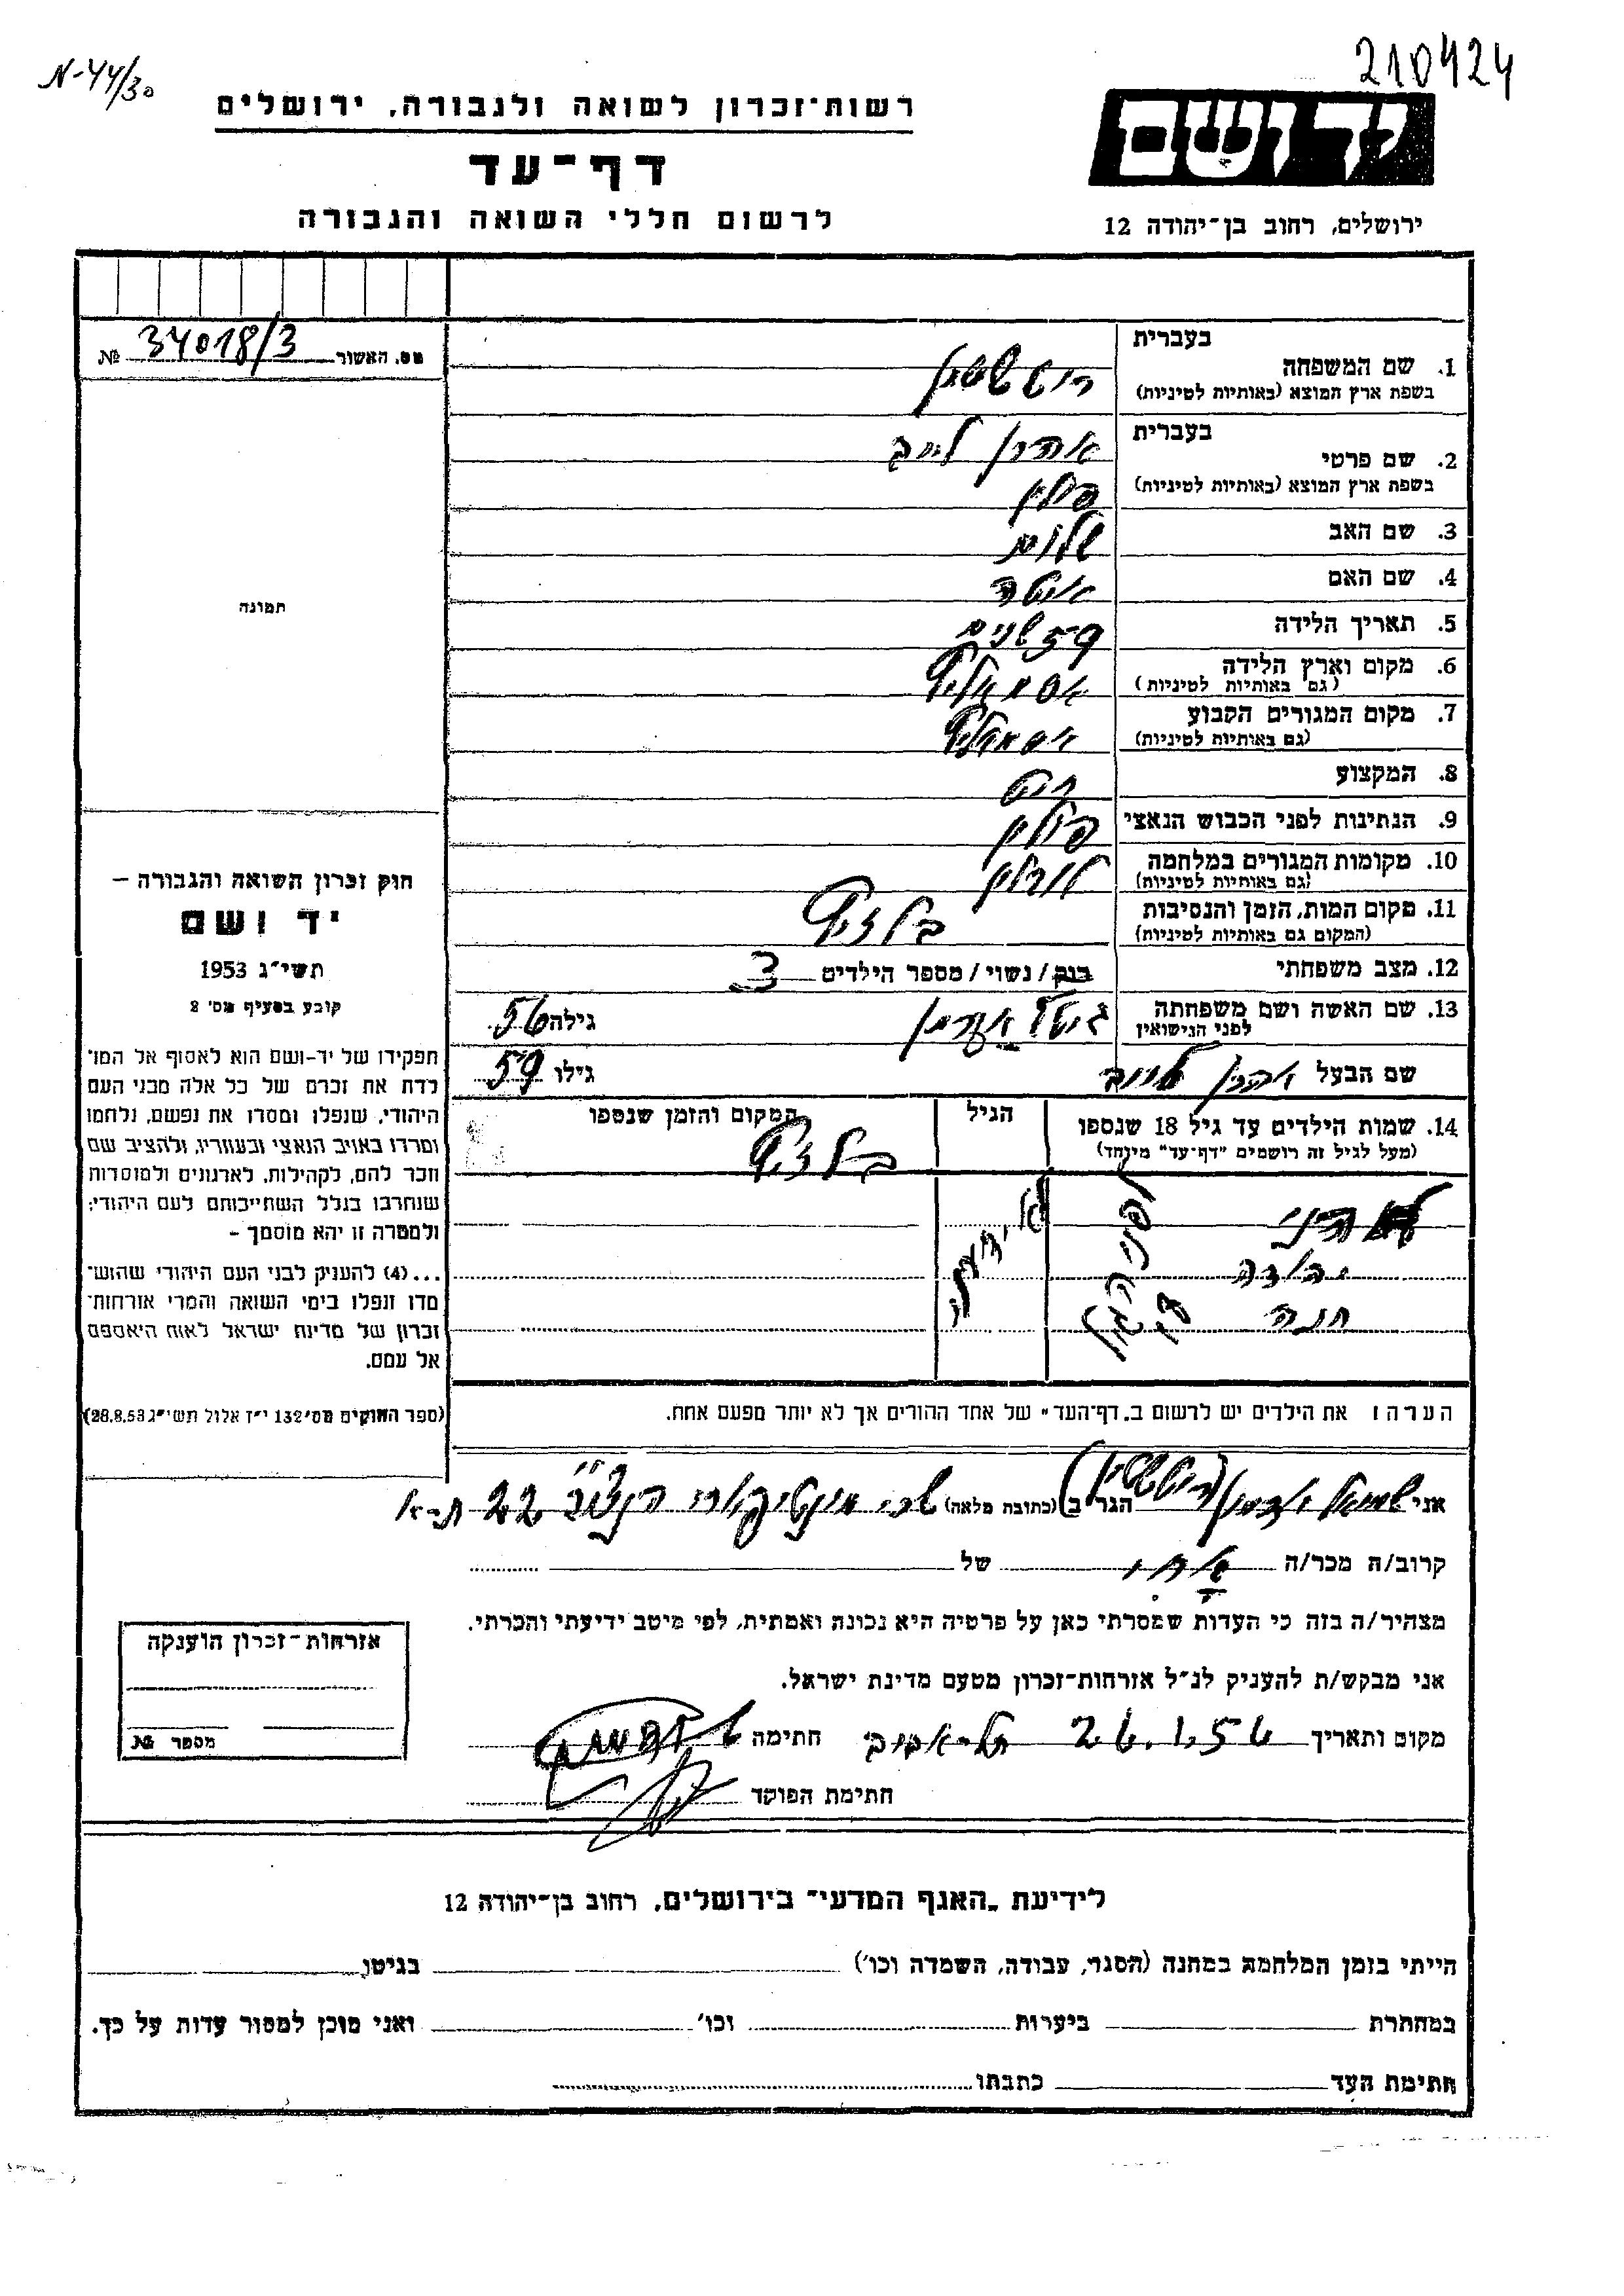 210424
N-44/30
יד ושם
רשות־זכרון לשואה ולגבורה, ירושלים
דף־עד
לרשום חללי השואה והגבורה
ירושלים, רחוב בן־יהודה 12
מס. האשור 34018/3 №
תמונה
בעברית
1. שם המשפחה
בשפת ארץ המוצא (באותיות לטיניות)
בעברית
2. שם פרטי אהרן לייב
בשפת ארץ המוצא (באותיות לטיניות) פולין
3. שם האב שלום
4. שם האם איטה
5. תאריך הלידה 59 שנים
6. מקום וארץ הלידה
(גם באותיות לטיניות)
7. מקום המגורים הקבוע
(גם באותיות לטיניות)
8. המקצוע
9. הנתינות לפני הכבוש הנאצי פולין
10. מקומות המגורים במלחמה
(גם באותיות לטיניות)
11. מקום המות, הזמן והנסיבות
(המקום גם באותיות לטיניות)
12. מצב משפחתי רוק / נשוי / מספר הילדים 3
13. שם האשה ושם משפחתה גיטל גילה 56
לפני הנישואין
שם הבעל אהרן לייב גילו 59
14. שמות הילדים עד גיל 18 שנספו הגיל המקום והזמן שנספו
(מעל לגיל זה רושמים "דף־עד" מיוחד)
חנה
הערה: את הילדים יש לרשום ב„דף־העד" של אחד ההורים אך לא יותר מפעם אחת.
חוק זכרון השואה והגבורה –
יד ושם
תשי"ג 1953
קובע בסעיף מס' 2
תפקידו של יד-ושם הוא לאסוף אל המו־
לדת את זכרם של כל אלה מבני העם
היהודי, שנפלו ומסרו את נפשם, נלחמו
ומרדו באויב הנאצי ובעוזריו, ולהציב שם
וזכר להם, לקהילות, לארגונים ולמוסדות
שנחרבו בגלל השתייכותם לעם היהודי;
ולמטרה זו יהא מוסמך –
...(4) להעניק לבני העם היהודי שהוש־
מדו ונפלו בימי השואה והמרי אזרחות־
זכרון של מדינת ישראל לאות היאספם
אל עמם.
(ספר החוקים מס' 132 י"ז אלול תשי"ג 28.8.53)
אני שמואל הגר ב (כתובת מלאה) 22 ת-א
קרוב/ה מכר/ה של
מצהיר/ה בזה כי העדות שמסרתי כאן על פרטיה היא נכונה ואמתית, לפי מיטב ידיעתי והכרתי.
אני מבקש/ת להעניק לנ"ל אזרחות-זכרון מטעם מדינת ישראל.
מקום ותאריך 26.1.56 תל-אביב חתימה
חתימת הפוקד
אזרחות-זכרון הוענקה
מספר №
לידיעת „האגף המדעי" בירושלים, רחוב בן־יהודה 12
הייתי בזמן המלחמה במחנה (הסגר, עבודה, השמדה וכו') בגיטו
במחתרת ביערות וכו' ואני מוכן למסור עדות על כך.
חתימת העד כתבתו